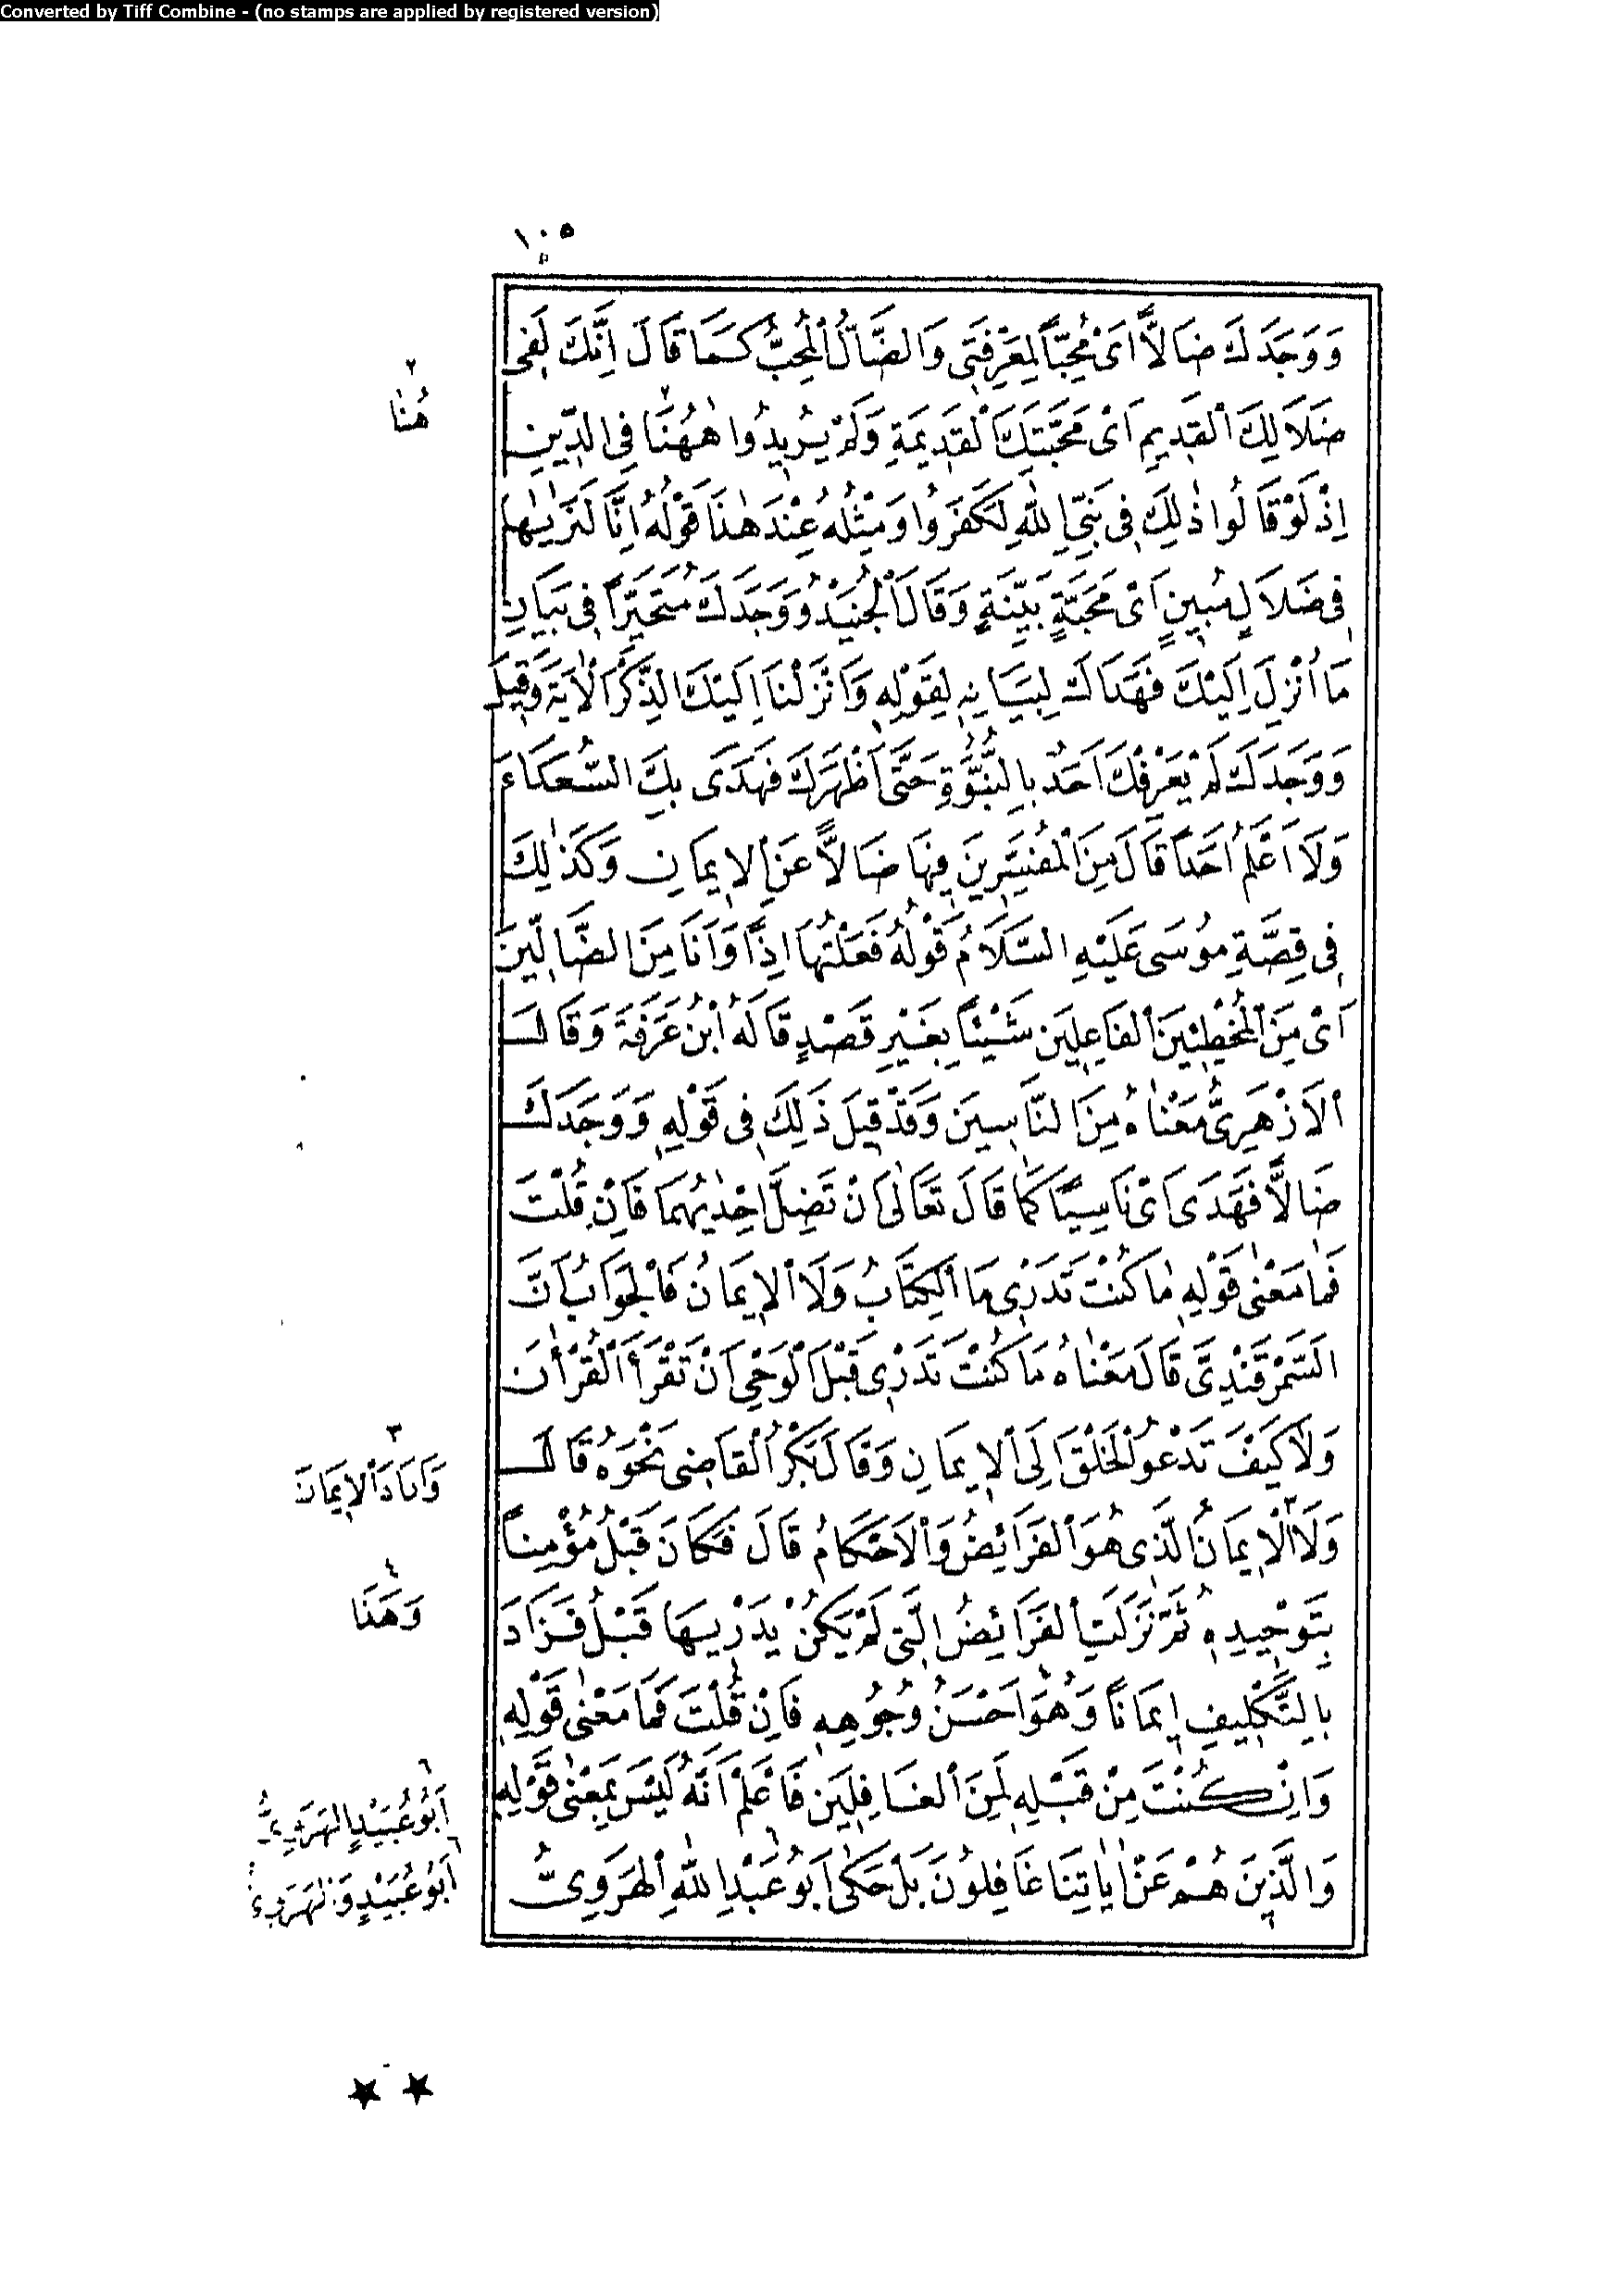 Converted by Tiff Combine - (no stamps are applied by registered version)
١٠٥
وَوَجَدَكَ ضَالاًّ اَىْ مُحِبّاً لِمَعْرِفَتِى وَالضَّالُّ الْمُحِبُّ كَمَا قَالَ اِنَّكَ لَفِى
ضَلاَلِكَ الْقَدِيمِ اَىْ مَحَبَّتِكَ الْقَدِيمَةِ وَلَمْ يُرِيدُوا هٰهُنَا فِى الدِّينِ
اِذْ لَوْ قَالُوا ذٰلِكَ فِى نَبِىِّ اللهِ لَكَفَرُوا وَمِثْلُهُ عِنْدَ هٰذَا قَوْلُهُ اِنَّا لَنَرٰيهَا
فِى ضَلاَلٍ مُبِينٍ اَىْ مَحَبَّةٍ بَيِّنَةٍ وَقَالَ الْجُنَيْدُ وَوَجَدَكَ مُتَحَيِّرًا فِى بَيَانِ
مَا اُنْزِلَ اِلَيْكَ فَهَدَاكَ لِبَيَانِهِ لِقَوْلِهِ وَاَنْزَلْنَا اِلَيْكَ الذِّكْرَ الْاٰيَةَ وَقِيلَ
وَوَجَدَكَ لَمْ يَعْرِفْكَ اَحَدٌ بِالنُّبُوَّةِ حَتَّى اَظْهَرَكَ فَهَدَى بِكَ السُّعَدَاءَ
وَلَا اَعْلَمُ اَحَدًا قَالَ مِنَ الْمُفَسِّرِينَ فِيهَا ضَالاًّ عَنِ الْاِيمَانِ وَكَذٰلِكَ
فِى قِصَّةِ مُوسَى عَلَيْهِ السَّلَامُ قَوْلُهُ فَعَلْتُهَا اِذًا وَاَنَا مِنَ الضَّالِّينَ
اَىْ مِنَ الْمُخْطِئِينَ الْفَاعِلِينَ شَيْئًا بِغَيْرِ قَصْدٍ قَالَهُ ابْنُ عَرَفَةَ وَقَالَ
الْاَزْهَرِىُّ مَعْنَاهُ مِنَ النَّاسِينَ وَقَدْ قِيلَ ذَلِكَ فِى قَوْلِهِ وَوَجَدَكَ
ضَالاًّ فَهَدَى اَىْ نَاسِيًا كَمَا قَالَ تَعَالَى اَنْ تَضِلَّ اِحْدٰيهُمَا فَاِنْ قُلْتَ
فَمَا مَعْنٰى قَوْلِهِ مَا كُنْتَ تَدْرِى مَا الْكِتَابُ وَلَا الْاِيمَانُ فَالْجَوَابُ اَنَّ
السَّمَرْقَنْدِىَّ قَالَ مَعْنَاهُ مَا كُنْتَ تَدْرِى قَبْلَ الْوَحْىِ اَنْ تَقْرَأَ الْقُرْاٰنَ
وَلَا كَيْفَ تَدْعُو الْخَلْقَ اِلَى الْاِيمَانِ وَقَالَ بَكْرٌ الْقَاضِى نَحْوَهُ قَالَ
وَلَا الْاِيمَانُ الَّذِى هُوَ الْفَرَائِضُ وَالْاَحْكَامُ قَالَ فَكَانَ قَبْلُ مُؤْمِنًا
بِتَوْحِيدِهِ ثُمَّ نَزَلَتِ الْفَرَائِضُ الَّتِى لَمْ يَكُنْ يَدْرِيهَا قَبْلُ فَزَادَ
بِالتَّكْلِيفِ اِيمَانًا وَهُوَ اَحْسَنُ وُجُوهِهِ فَاِنْ قُلْتَ فَمَا مَعْنٰى قَوْلِهِ
وَاِنْ كُنْتَ مِنْ قَبْلِهِ لَمِنَ الْغَافِلِينَ فَاعْلَمْ اَنَّهُ لَيْسَ بِمَعْنٰى قَوْلِهِ
وَالَّذِينَ هُمْ عَنْ اٰيَاتِنَا غَافِلُونَ بَلْ حَكٰى اَبُو عَبْدِ اللهِ الْهَرَوِىُّ
٢
هُنَا
٣
وَاَرَادَ الْاِيمَانَ
٤
وَهَذَا
٦
اَبُو عُبَيْدٍ الْهَرَوِىُّ
٦
اَبُو عُبَيْدٍ وَالْهَرَوِىُّ